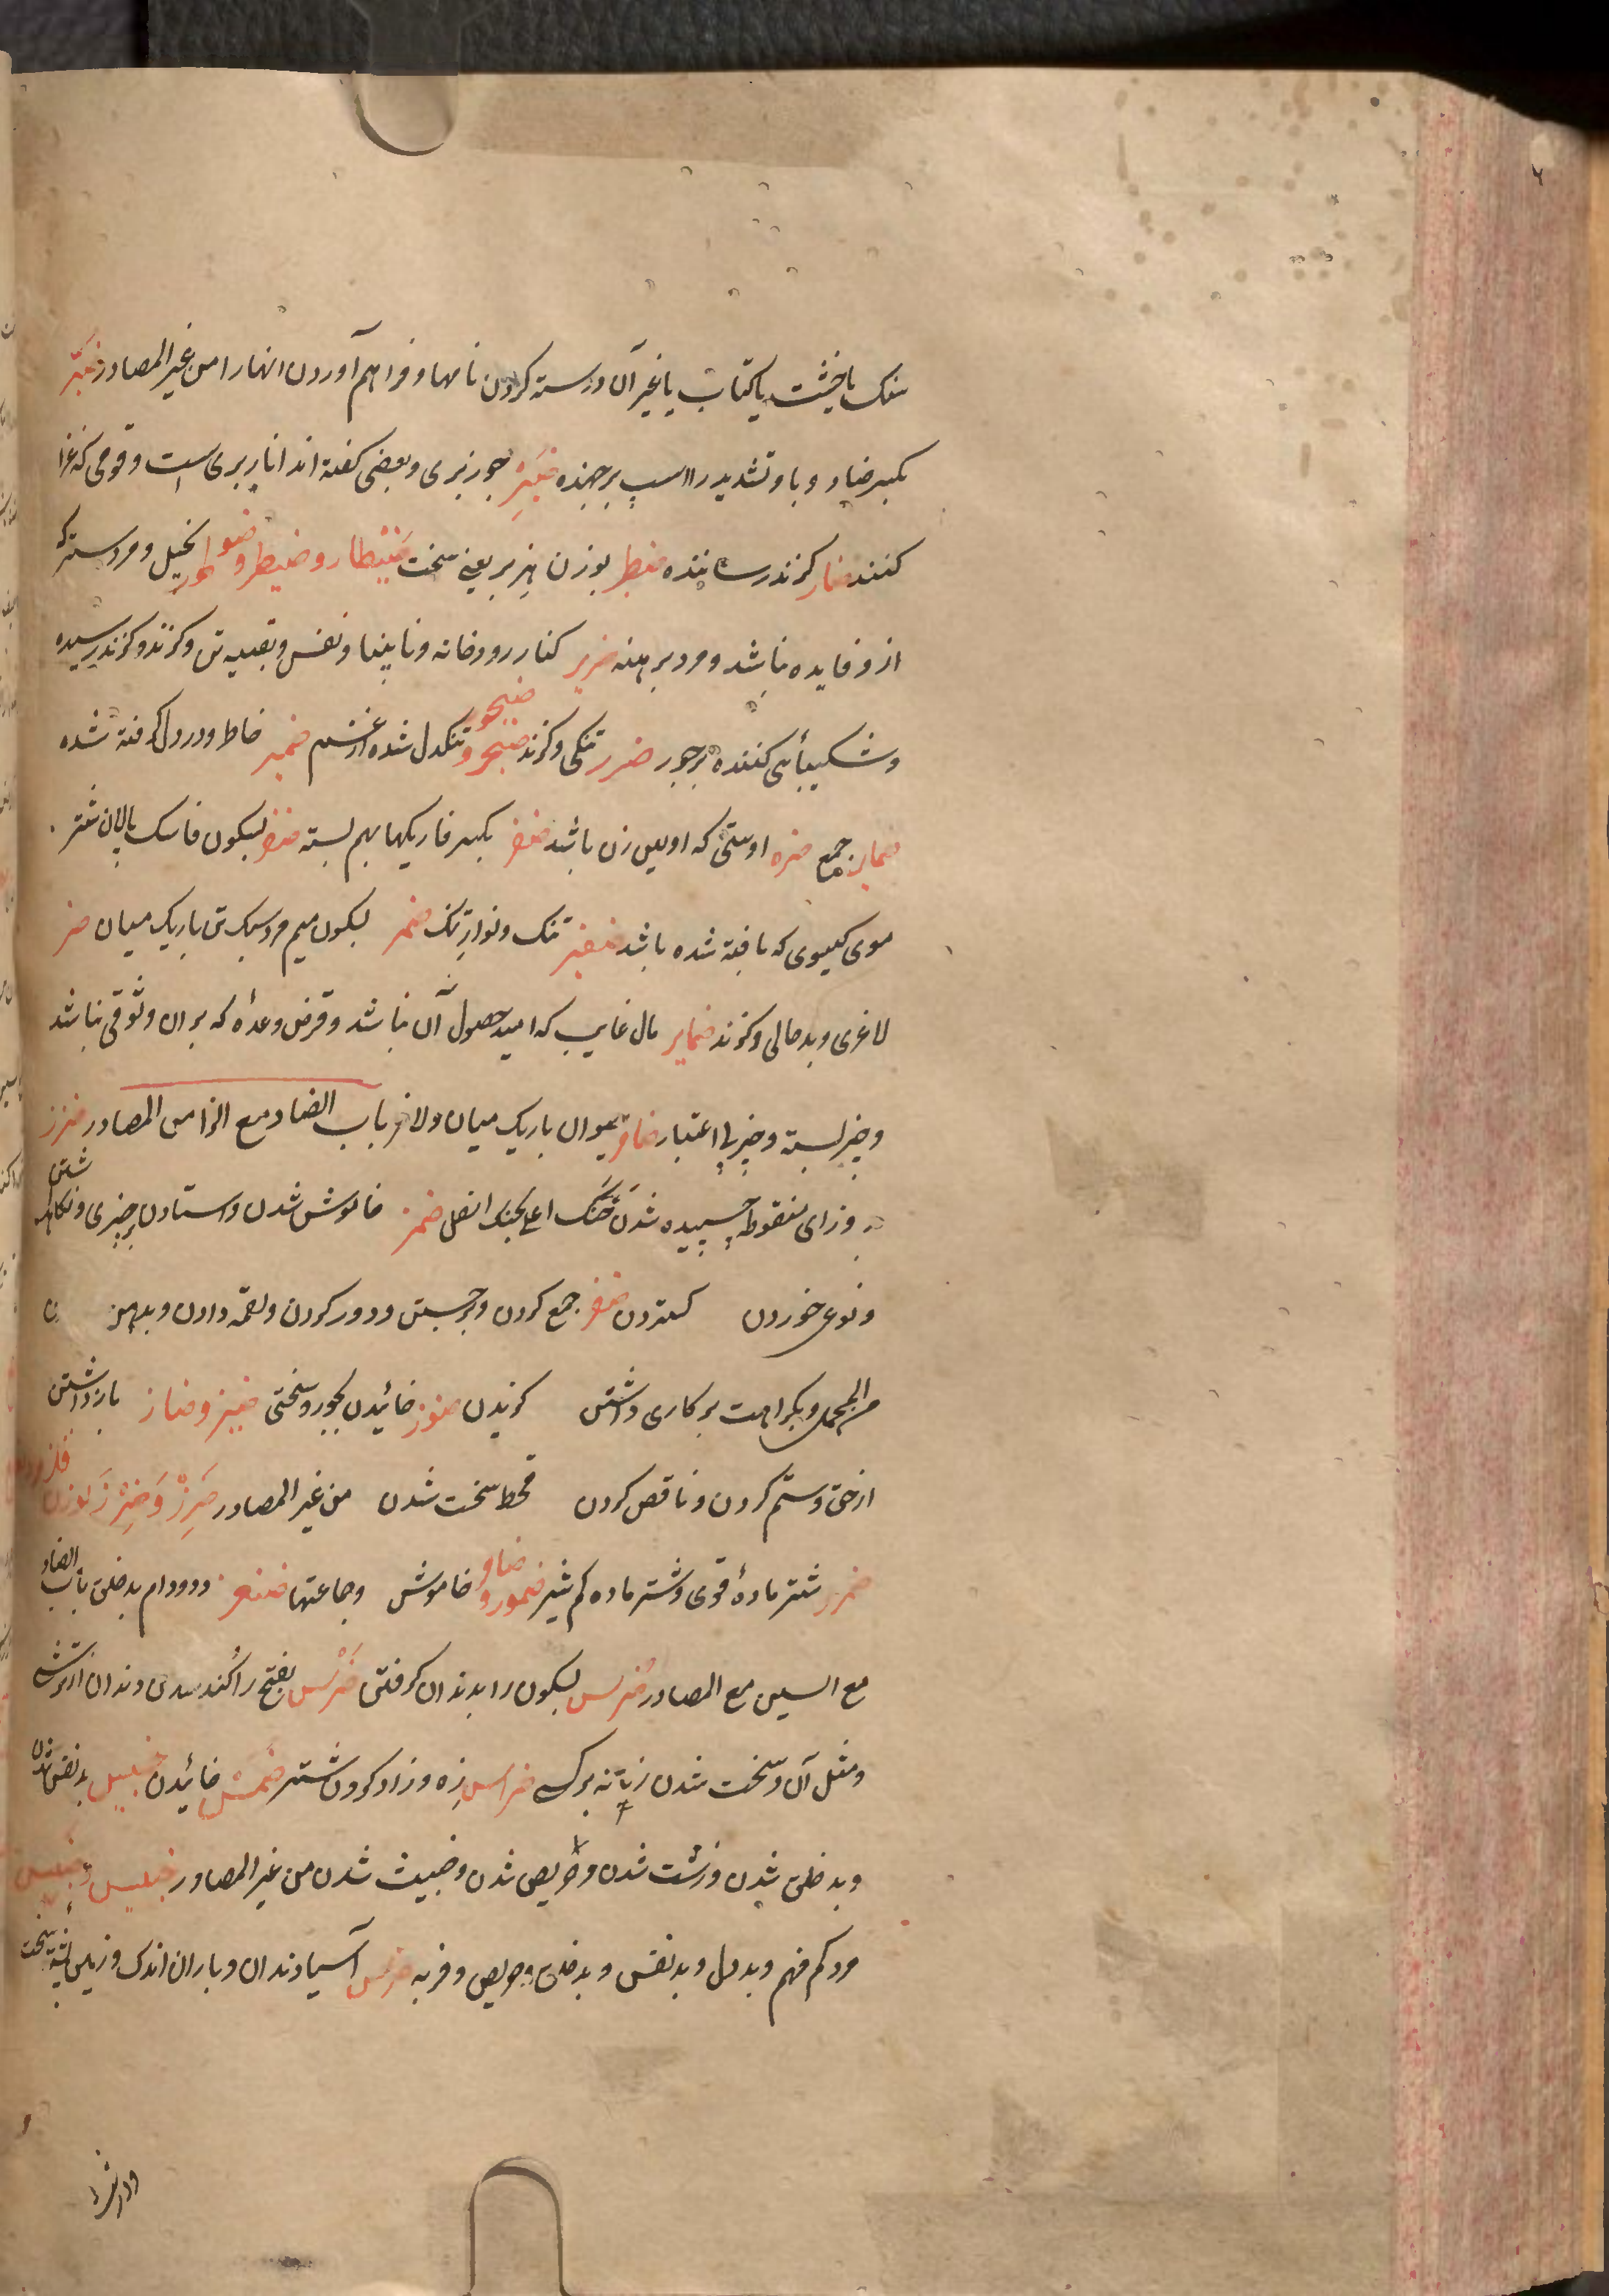 سنک یا خشت یا کتاب یا غیر آن و رسته کردن نامها و فراهم آوردن انها را من غیر المصادر ضبر
بکسر ضاد و با و تشدید را اسب برجهنده ضبر جوز بری و بعضی کفته اند انار بری است و قومی که غزا
کنند ضار کزند رساننده ضبطر بوزن هزبر یعنی سخت ضبیطار و ضیطر و ضوطر بخیل و مردستر که
ازو فایده نباشد و مرد برهنه ضریر کنار رودخانه و نابینا و نفس و بقیه تن و کزند و کزند رسیده
و شکیبائی کننده بر جور ضرر تنکی و کزند ضجر و ضجور تنکدل شده از غم ضمیر خاطر و در دل کرفته شده
ضمایر جمع ضره اوستی که او بس زن باشد ضفر بکسر فا ریکها بهم بسته ضفر بسکون فا سک پالان شتر
موی کیسوی که بافته شده باشد ضفیر تنک و نوار تنک ضمر بسکون میم مرد سبک تن باریک میان ضر
لاغری و بدحالی و کزند ضمایر مال غایب که امید حصول آن نباشد و قرض وعده که بر ان وثوقی نباشد
و چیز بسته و چیز بی اعتبار ضامر حیوان باریک میان و لاغر باب الضاد مع الزا من المصادر ضزز
و زای منقوطه چسپیده شدن حنک اعلی بحنک اسفل ضمز خاموش شدن و استادن بر چیزی و نکاه داشتن
و نوعی خوردن کستردن ضفز جمع کردن و برجستن و دور کردن و لقمه دادن و بدهن
من المجمل و بکراهت بر کاری داشتن کزیدن ضوز خائیدن بجور و سختی ضیز و ضاز بازداشتن
از حق و ستم کردن و ناقص کردن قحط سخت شدن من غیر المصادر ضرز و ضرز بوزن فلز
ضمرز شتر مادهٔ قوی و شتر ماده کم شیر ضموز و ضامز خاموش و جماعتها ضغز ددودام بدخلق باب الضاد
مع السین مع المصادر ضرس بسکون را بدندان کرفتن ضرس بفتح را کند شدن دندان از ترشی
و مثل آن و سخت شدن زمانه بر کسی ضراس زه و زاد کردن شتر ضمس خائیدن ضبس بد نفس شدن
و بدخلق شدن و زشت شدن و حریص شدن و خبیث شدن من غیر المصادر ضبیس و ضبس
مرد کم فهم و بددل و بدنفس و بدخلق و حریص و فربه ضرس آسیا دندان و باران اندک و زمین پشته سخت